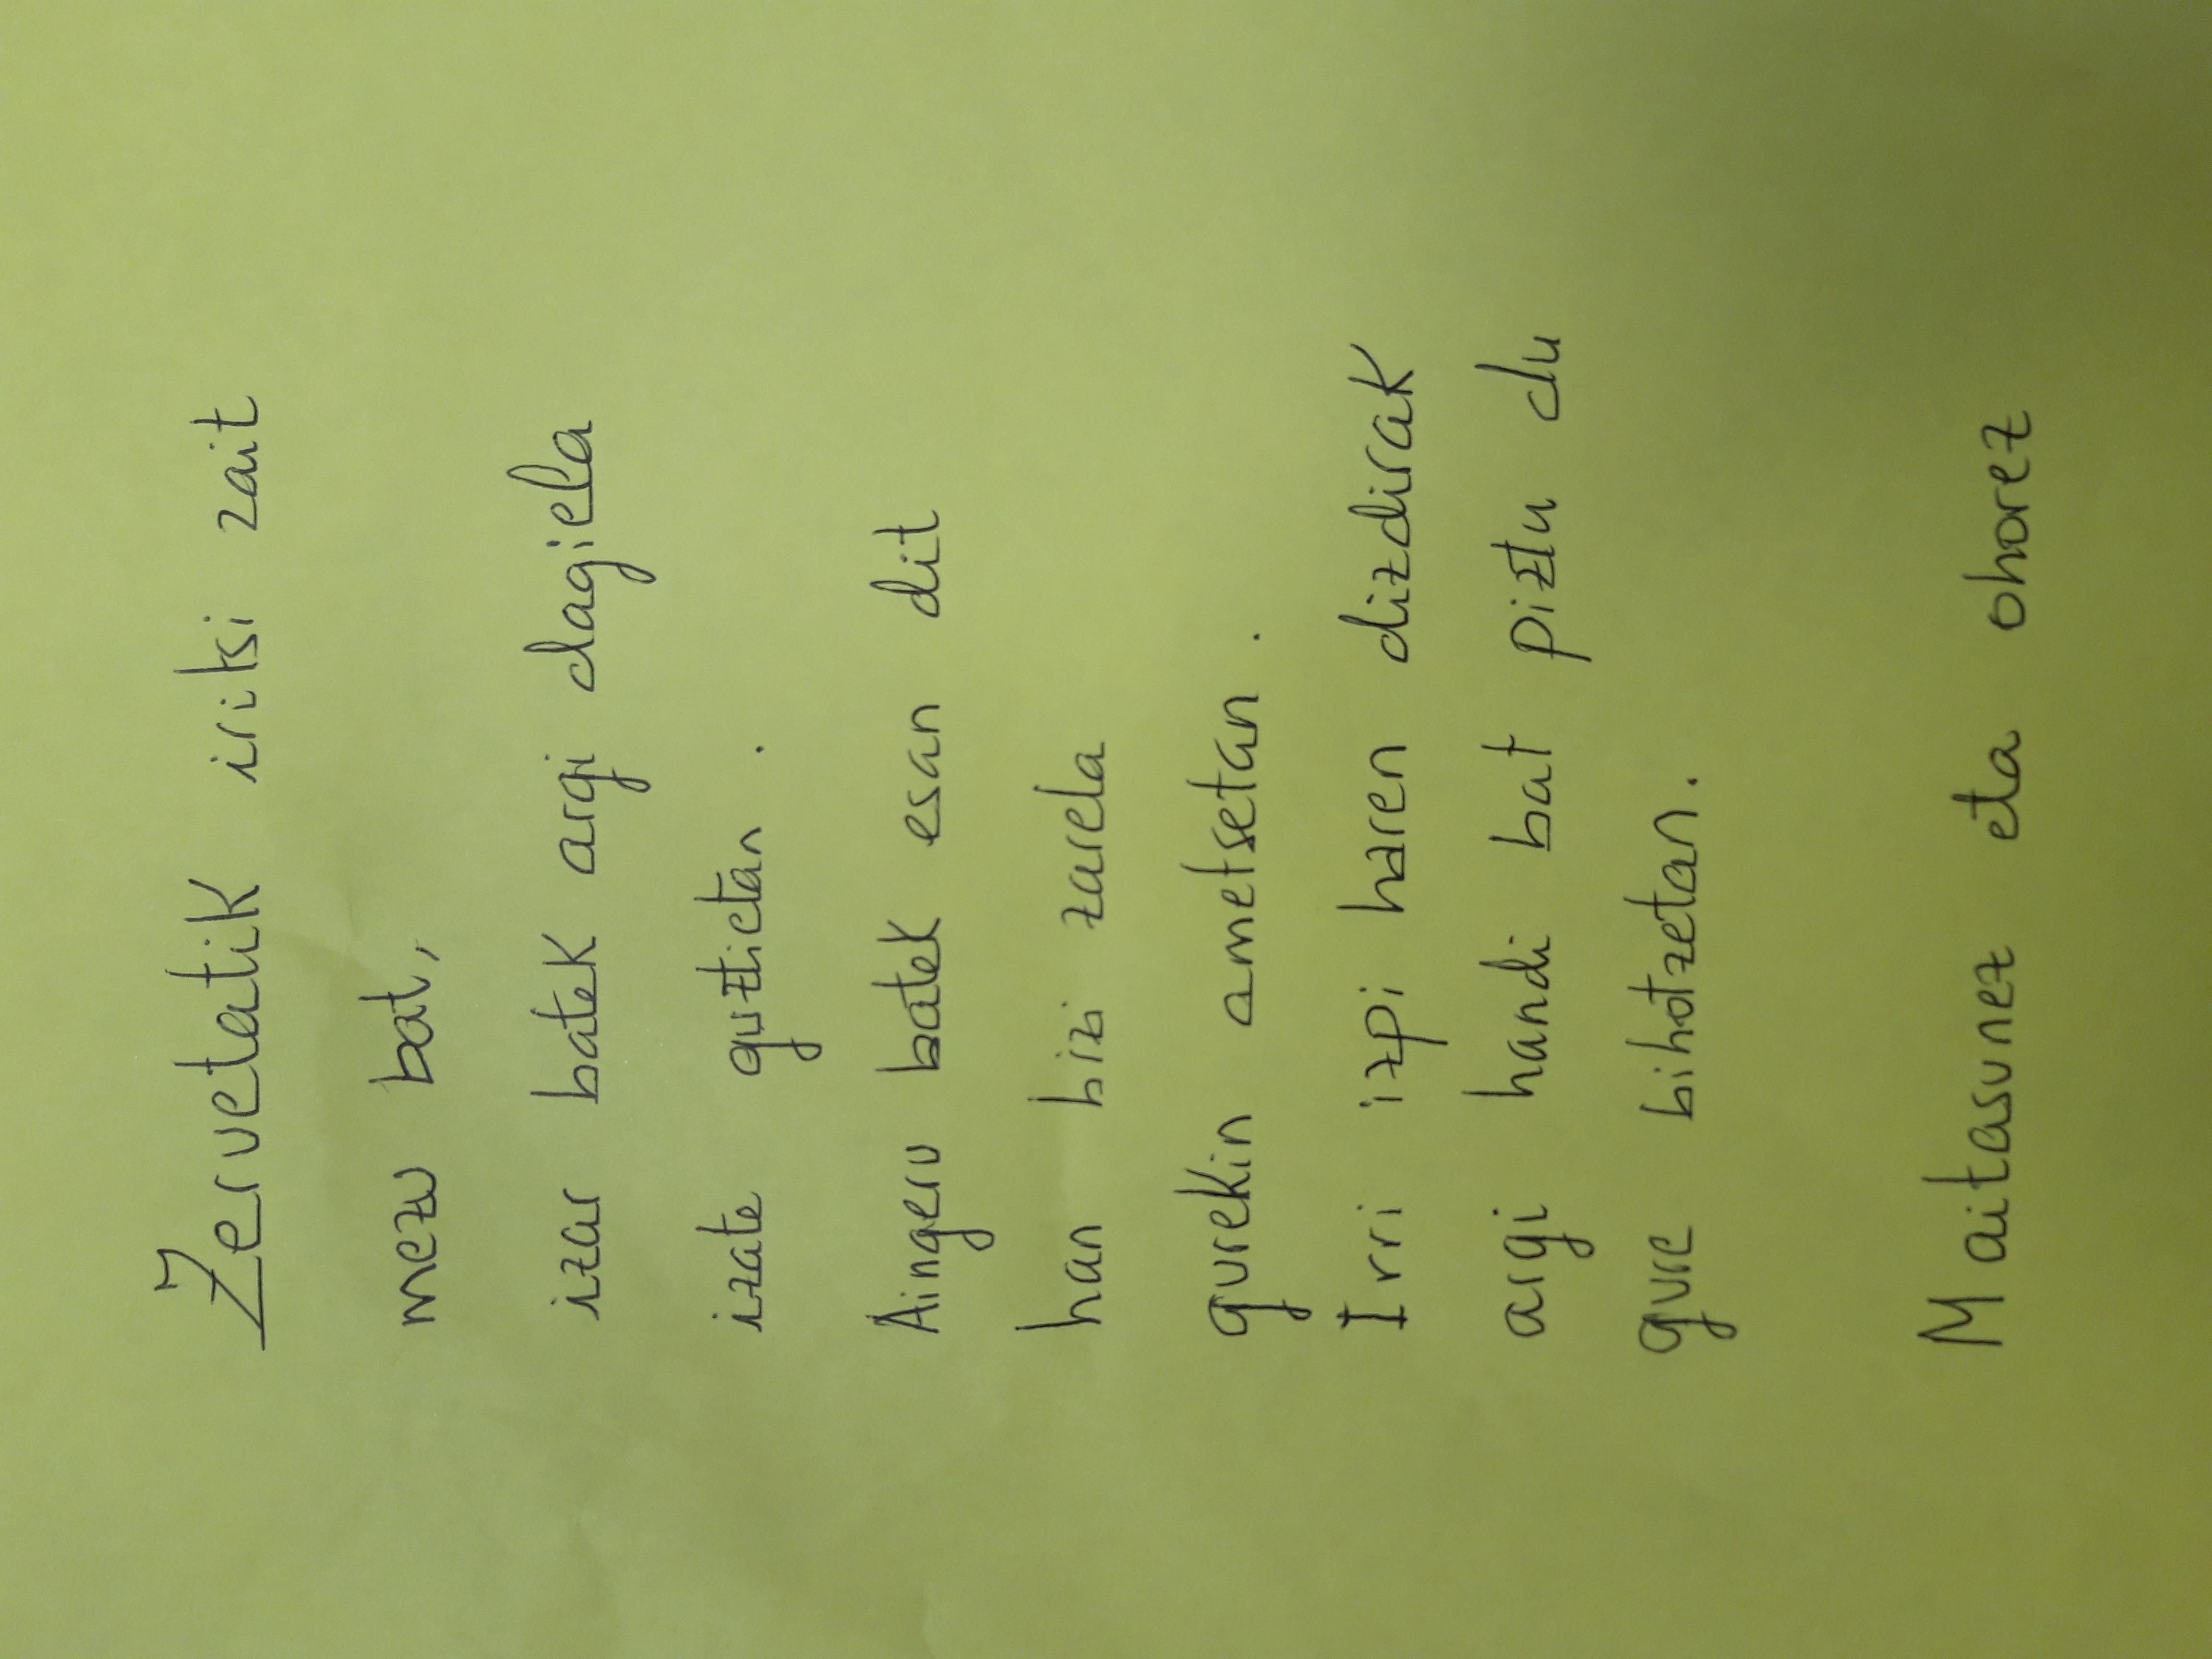 Zeruetatik iritsi zait
mezu bat,
izar batek argi dagiela
izate guztietan .
Aingeru batek esan dit
han bizi zarela
gurekin ametsetan .
Irri izpi haren dizdirak
argi handi bat piztu du
gure bihotzetan.
Maitasunez eta ohorez